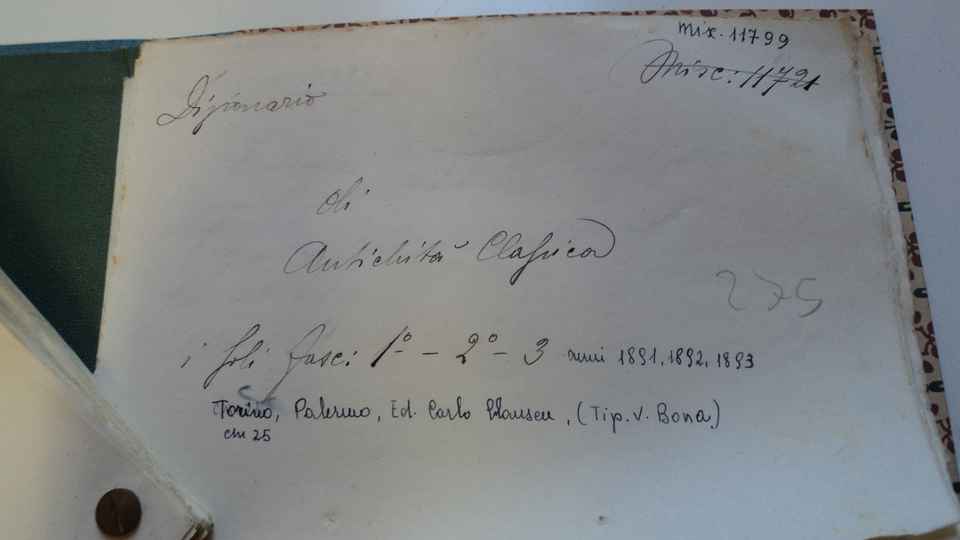 Mix. 11799
Misc: 11721
Dizionario
di
Antichità Classica
i soli fasc: 1° - 2° - 3 anni 1891, 1892, 1893
Torino, Palermo, Ed. Carlo Clausen, (Tip. V. Bona)
cm 25
275